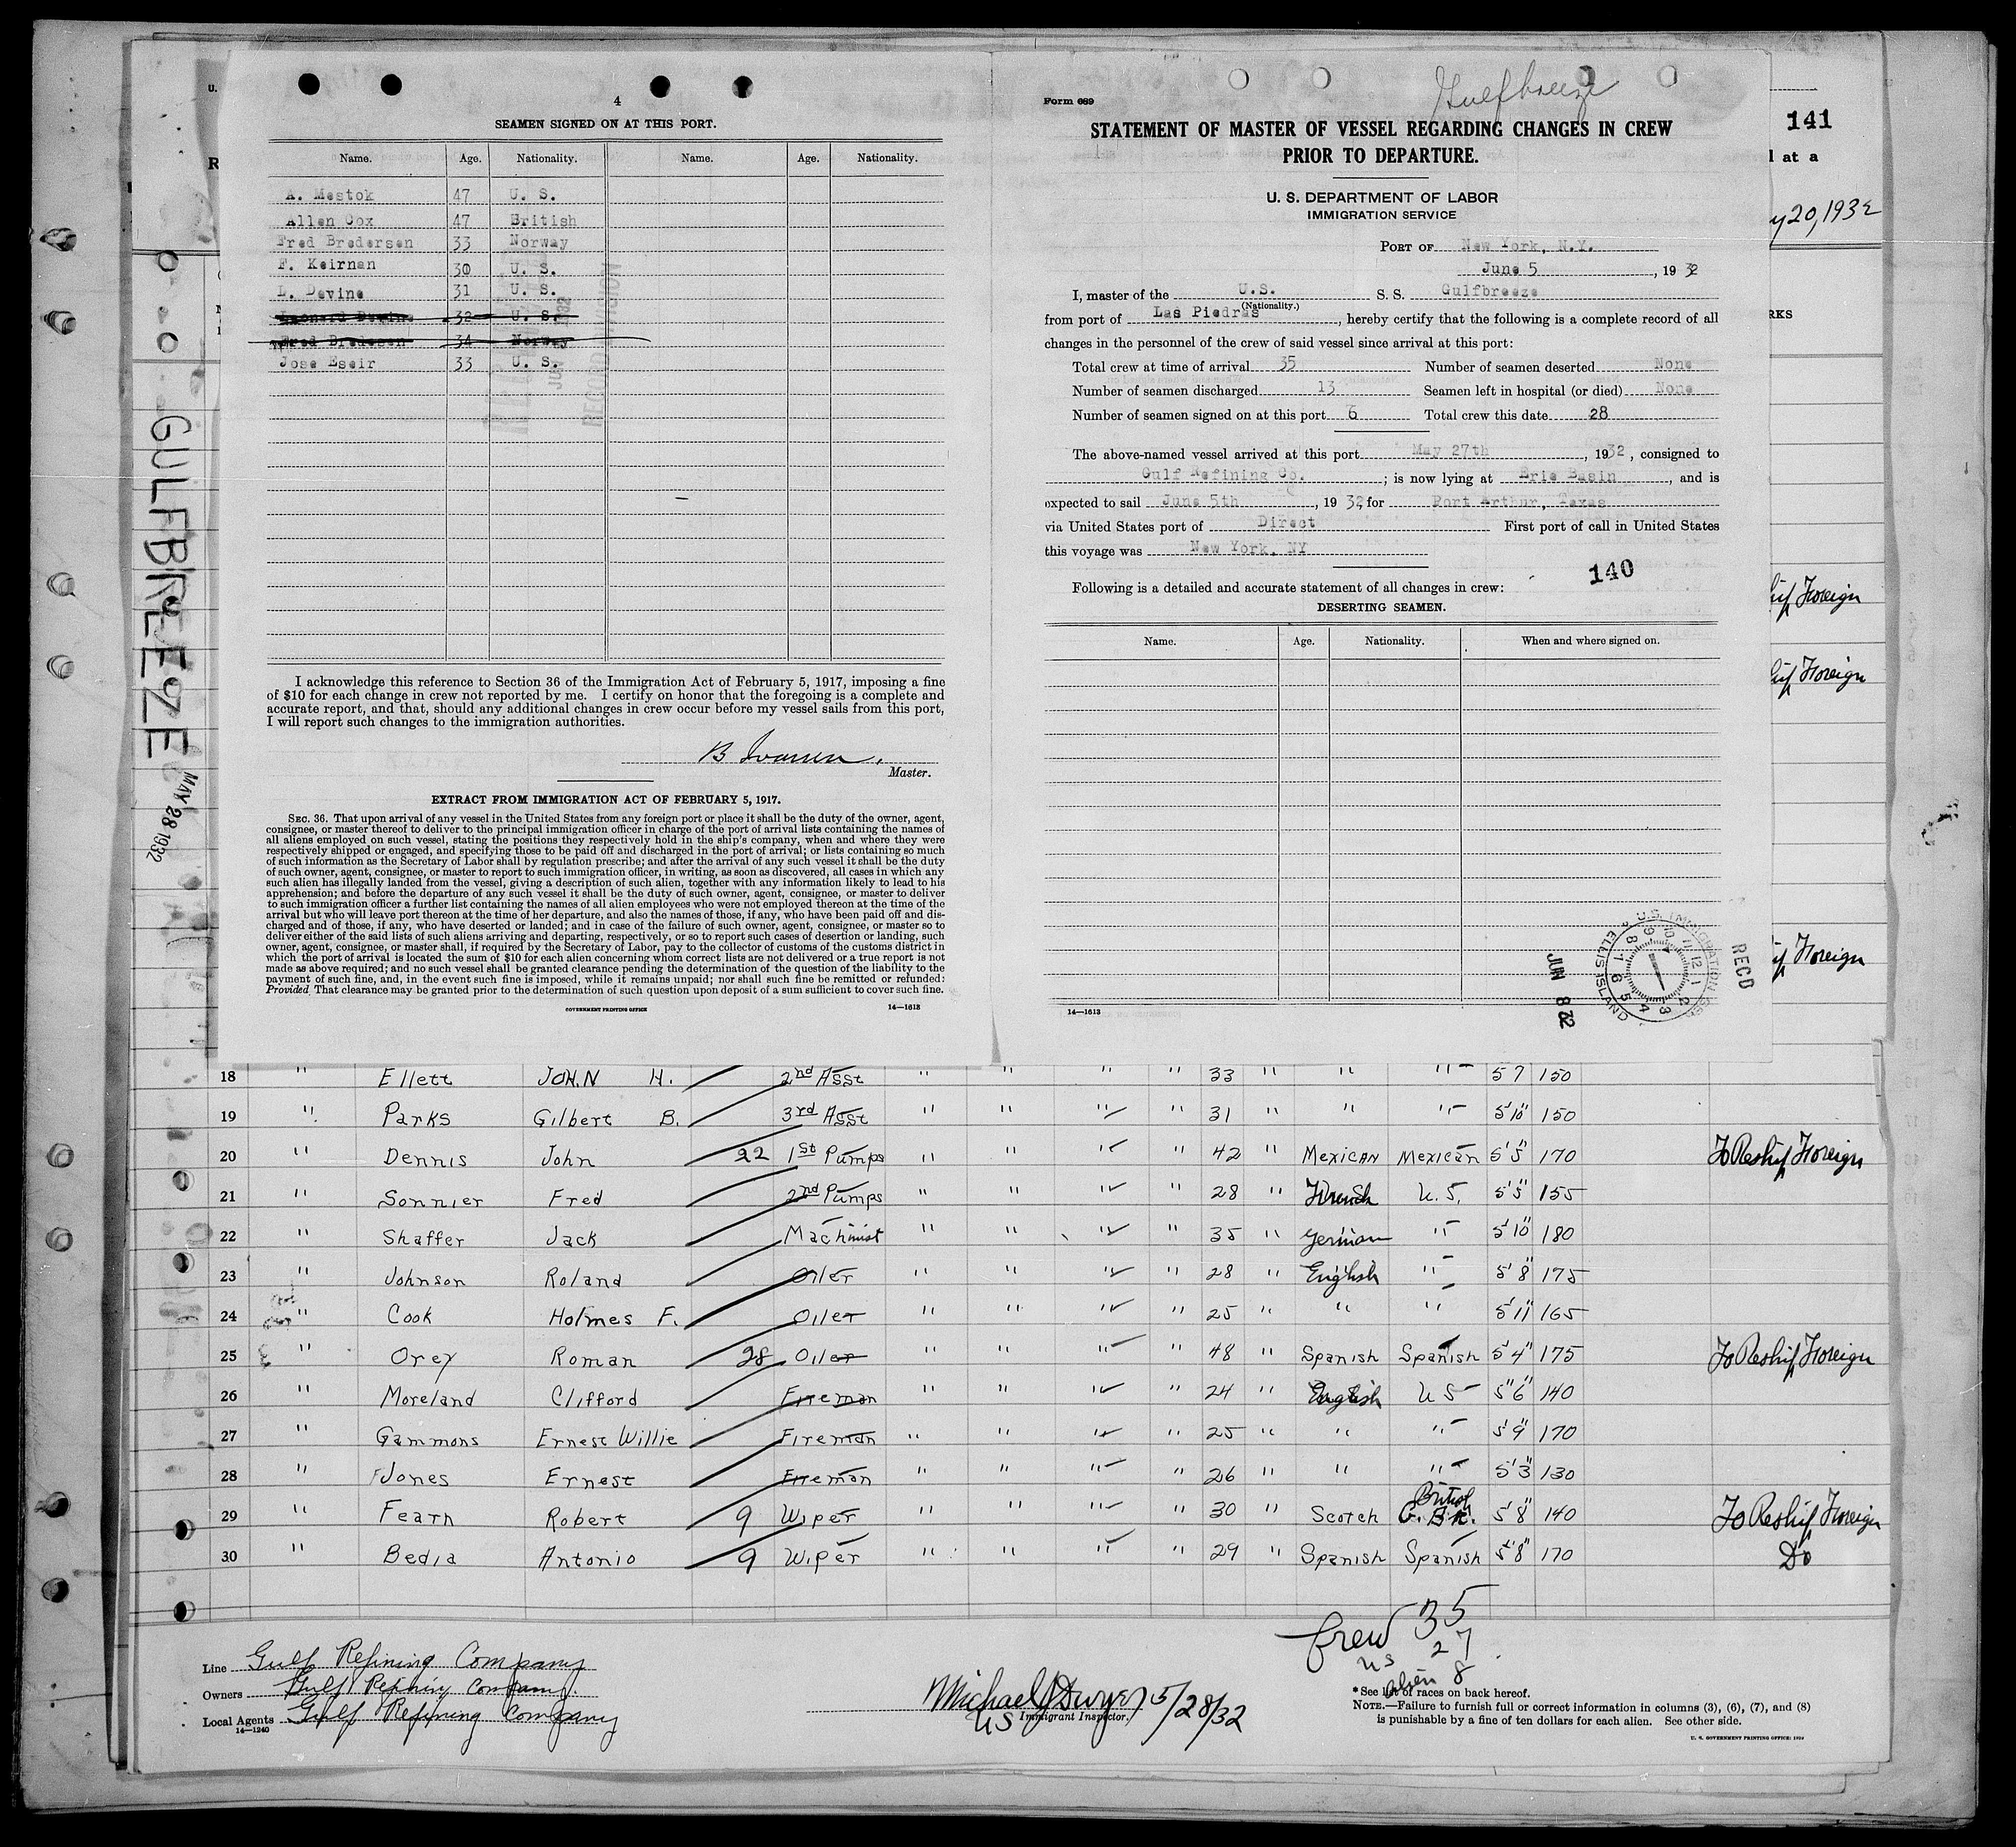 4
SEAMEN SIGNED ON AT THIS PORT.
Name. Age. Nationality. Name. Age. Nationality.
A. Mestok 47 U. S.
Allen Cox 47 British
Fred Bredersen 33 Norway
F. Keirnan 30 U. S.
L. Devine 31 U. S.
32 U. S.
Fred Bredesen 34 Norway
Jose Eseir 33 U. S.
I acknowledge this reference to Section 36 of the Immigration Act of February 5, 1917, imposing a fine
of $10 for each change in crew not reported by me. I certify on honor that the foregoing is a complete and
accurate report, and that, should any additional changes in crew occur before my vessel sails from this port,
I will report such changes to the immigration authorities.
B
Master.
EXTRACT FROM IMMIGRATION ACT OF FEBRUARY 5, 1917.
SEC. 36. That upon arrival of any vessel in the United States from any foreign port or place it shall be the duty of the owner, agent,
consignee, or master thereof to deliver to the principal immigration officer in charge of the port of arrival lists containing the names of
all aliens employed on such vessel, stating the positions they respectively hold in the ship's company, when and where they were
respectively shipped or engaged, and specifying those to be paid off and discharged in the port of arrival; or lists containing so much
of such information as the Secretary of Labor shall by regulation prescribe; and after the arrival of any such vessel it shall be the duty
of such owner, agent, consignee, or master to report to such immigration officer, in writing, as soon as discovered, all cases in which any
such alien has illegally landed from the vessel, giving a description of such alien, together with any information likely to lead to his
apprehension; and before the departure of any such vessel it shall be the duty of such owner, agent, consignee, or master to deliver
to such immigration officer a further list containing the names of all alien employees who were not employed thereon at the time of the
arrival but who will leave port thereon at the time of her departure, and also the names of those, if any, who have been paid off and dis-
charged and of those, if any, who have deserted or landed; and in case of the failure of such owner, agent, consignee, or master so to
deliver either of the said lists of such aliens arriving and departing, respectively, or so to report such cases of desertion or landing, such
owner, agent, consignee, or master shall, if required by the Secretary of Labor, pay to the collector of customs of the customs district in
which the port of arrival is located the sum of $10 for each alien concerning whom correct lists are not delivered or a true report is not
made as above required; and no such vessel shall be granted clearance pending the determination of the question of the liability to the
payment of such fine, and, in the event such fine is imposed, while it remains unpaid; nor shall such fine be remitted or refunded:
Provided That clearance may be granted prior to the determination of such question upon deposit of a sum sufficient to cover such fine.
GOVERNMENT PRINTING OFFICE 14—1613
Gulfbreeze
Form 689
STATEMENT OF MASTER OF VESSEL REGARDING CHANGES IN CREW
PRIOR TO DEPARTURE.
U. S. DEPARTMENT OF LABOR
IMMIGRATION SERVICE
PORT OF New York, N.Y.
June 5, 1932
I, master of the U.S. S. S. Gulfbreeze
(Nationality.)
from port of Las Piedras, hereby certify that the following is a complete record of all
changes in the personnel of the crew of said vessel since arrival at this port:
Total crew at time of arrival 35 Number of seamen deserted None
Number of seamen discharged 13 Seamen left in hospital (or died) None
Number of seamen signed on at this port 6 Total crew this date 28
The above-named vessel arrived at this port May 27th, 1932, consigned to
Gulf Refining Co. ; is now lying at Erie Basin, and is
expected to sail June 5th, 1932, for Port Arthur, Texas
via United States port of Direct First port of call in United States
this voyage was New York, NY
140
Following is a detailed and accurate statement of all changes in crew:
DESERTING SEAMEN.
Name. Age. Nationality. When and where signed on.
14—1613
U.S. IMMIGRATION
ELLIS ISLAND
RECD
JUN 8 32
141
l at a
y 20, 1932
RKS
Foreign
Foreign
Foreign
GULFBREEZE
MAY 28 1932
18 " Ellett JOHN H. 2nd Asst " " " " 33 " " " 5 7 150
19 " Parks Gilbert B. 3rd Asst " " " " 31 " " " 5'10" 150
20 " Dennis John 22 1st Pumps " " " " 42 " Mexican Mexican 5'5" 170 To Reship Foreign
21 " Sonnier Fred 2nd Pumps " " " " 28 " French U.S. 5'5" 155
22 " Shaffer Jack Machinist " " " " 35 " German " 5'10" 180
23 " Johnson Roland Oiler " " " " 28 " English " 5'8" 175
24 " Cook Holmes F. Oiler " " " " 25 " " " 5'11" 165
25 " Orey Roman 28 Oiler " " " " 48 " Spanish Spanish 5'4" 175 To Reship Foreign
26 " Moreland Clifford Fireman " " " " 24 " English US 5'6" 140
27 " Gammons Ernest Willie Fireman " " " " 25 " " " 5'9" 170
28 " Jones Ernest Fireman " " " " 26 " " " 5'3" 130
29 " Fearn Robert 9 Wiper " " " " 30 " Scotch British 5'8" 140 To Reship Foreign
30 " Bedia Antonio 9 Wiper " " " " 29 " Spanish Spanish 5'8" 170 Do
Crew 35
US 27
Alien 8
Line Gulf Refining Company
Owners Gulf Refining Company.
Local Agents Gulf Refining Company
14—1240
Michael J Dwyer 5/28/32
US Immigrant Inspector.
* See list of races on back hereof.
NOTE.—Failure to furnish full or correct information in columns (3), (6), (7), and (8)
is punishable by a fine of ten dollars for each alien. See other side.
U. S. GOVERNMENT PRINTING OFFICE: 1929